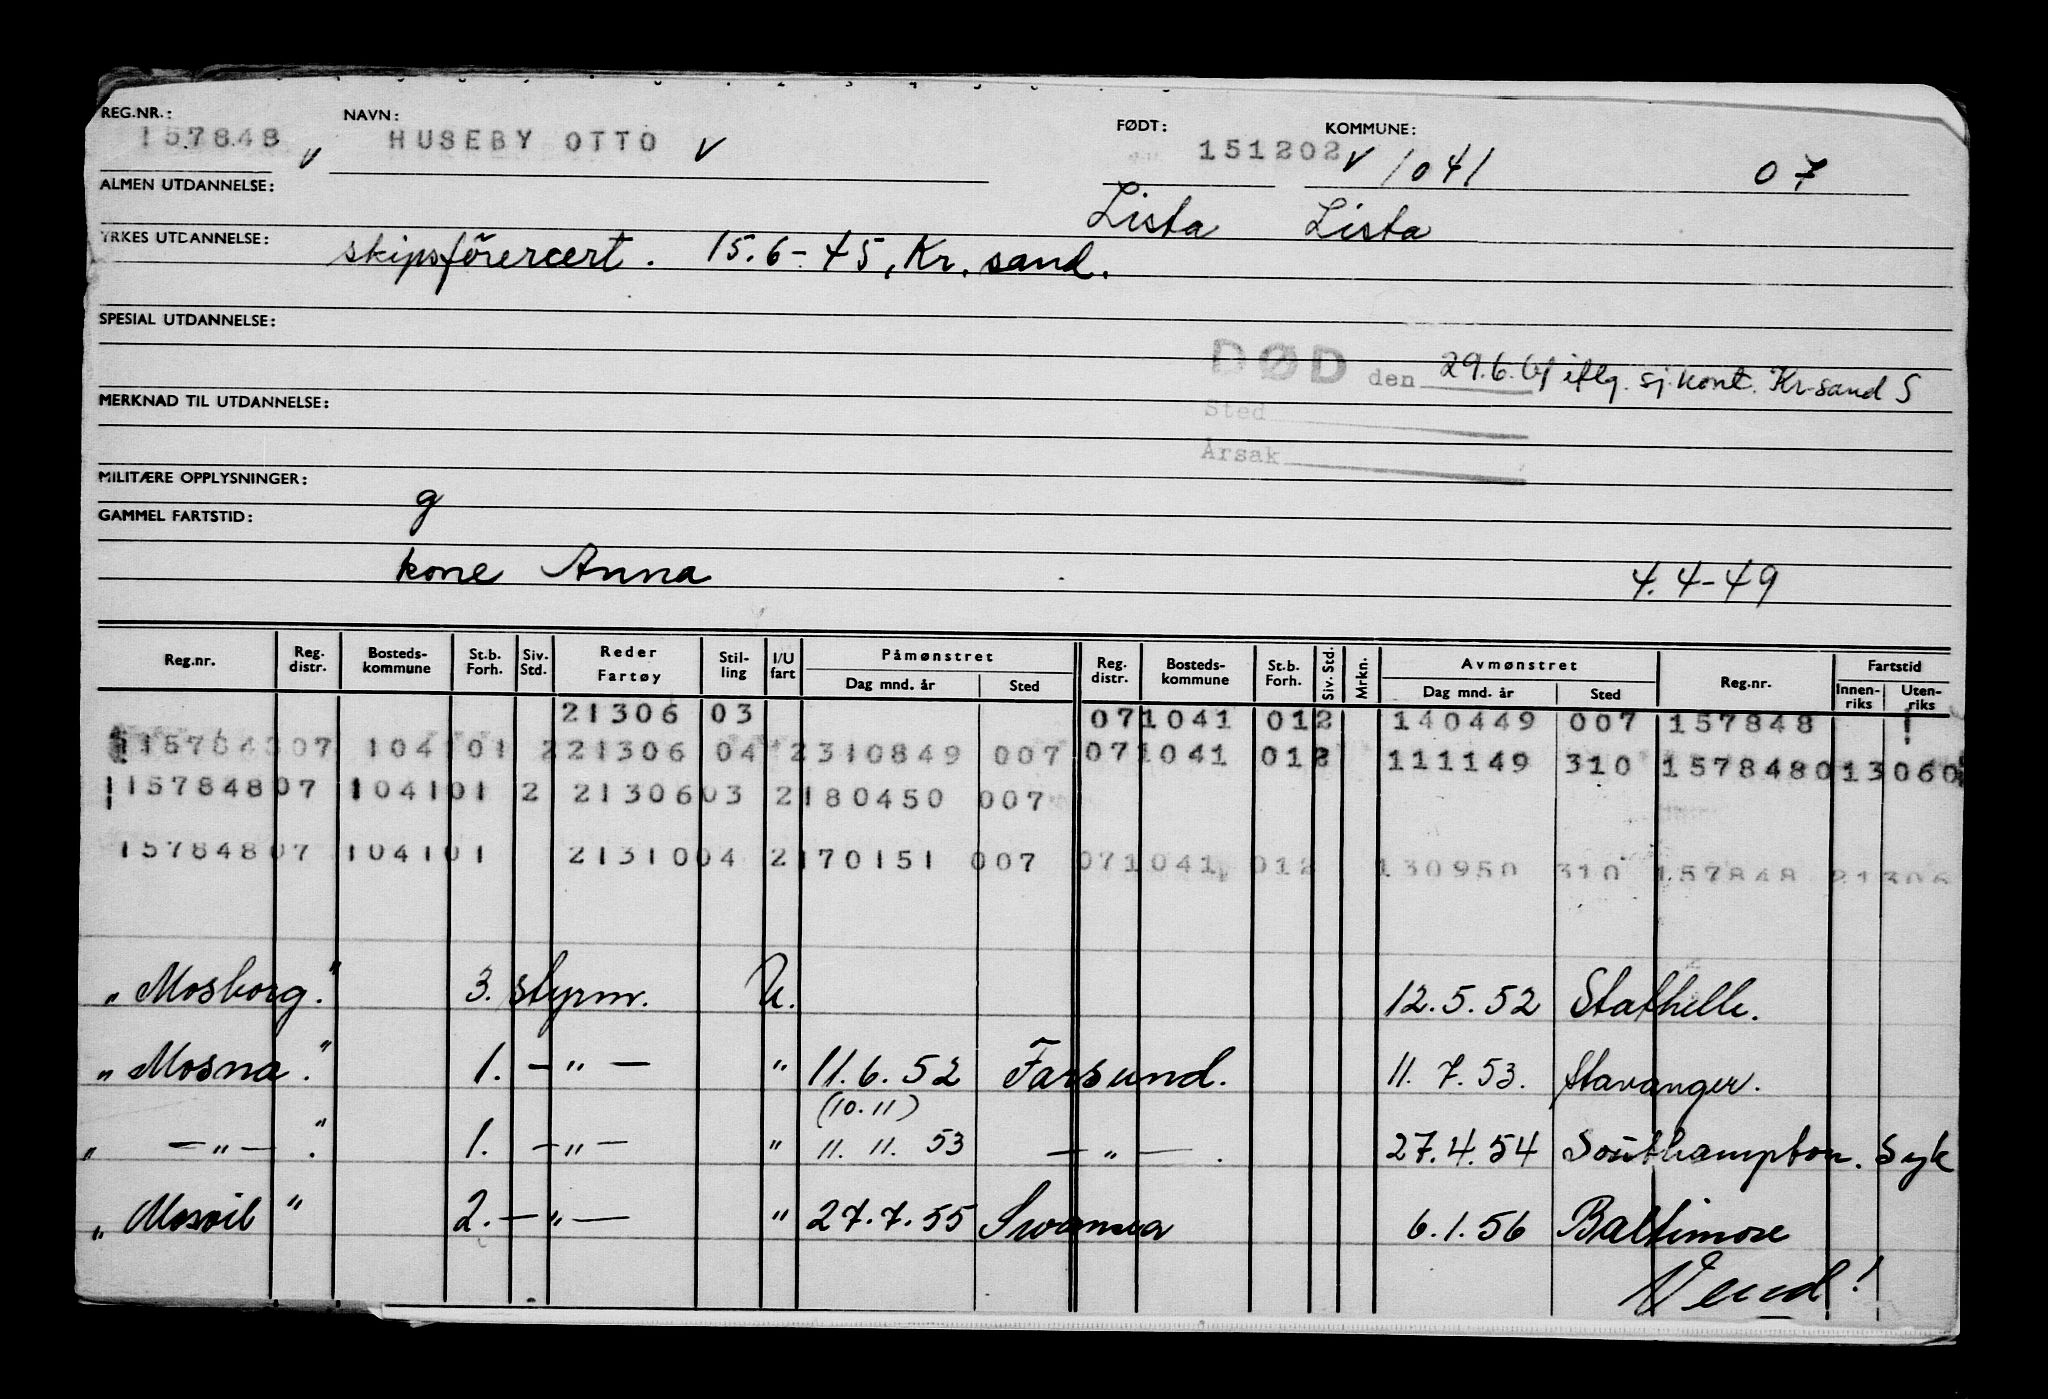 REG.NR.: NAVN: FØDT: KOMMUNE:
157848 v HUSEBY OTTO v 151202 v 1041 07
ALMEN UTDANNELSE:
Lista Lista
YRKES UTDANNELSE: skipsförercert. 15.6-45, Kr.sand.
SPESIAL UTDANNELSE:
DØD den 29.6.61 iflg. sj.kont. Kr.sand S
MERKNAD TIL UTDANNELSE:
Sted
Årsak
MILITÆRE OPPLYSNINGER: g
GAMMEL FARTSTID:
kone Anna 4.4-49
Reg.nr. Reg. distr. Bosteds-kommune St.b. Forh. Siv. Std. Reder Fartøy Stil-ling I/U fart Påmønstret Dag mnd. år Sted Reg. distr. Bosteds-kommune St.b. Forh. Siv. Std. Mrkn. Avmønstret Dag mnd. år Sted Reg.nr. Fartstid Innen-riks Uten-riks
21306 03 071041 012 140449 007 157848
15784807 104101 221306 04 2310849 007 071041 012 111149 310 157848013060
15784807 104101 2 2130603 2180450 007
15784807 104101 2131004 2170151 007 071041 012 130950 310 157848 21306
„ Mosborg." 3. styrm. U. 12.5.52 Stathelle.
„ Mosna." 1. - " - " 11.6.52 Farsund. 11.7.53. Stavanger.
(10.11)
„ - " - ." 1. - " - " 11.11.53 - " - . 27.4.54 Southampton. Syk
„ Mosvil " 2. - " - " 27.7.55 Swansea 6.1.56 Baltimore
Vend!